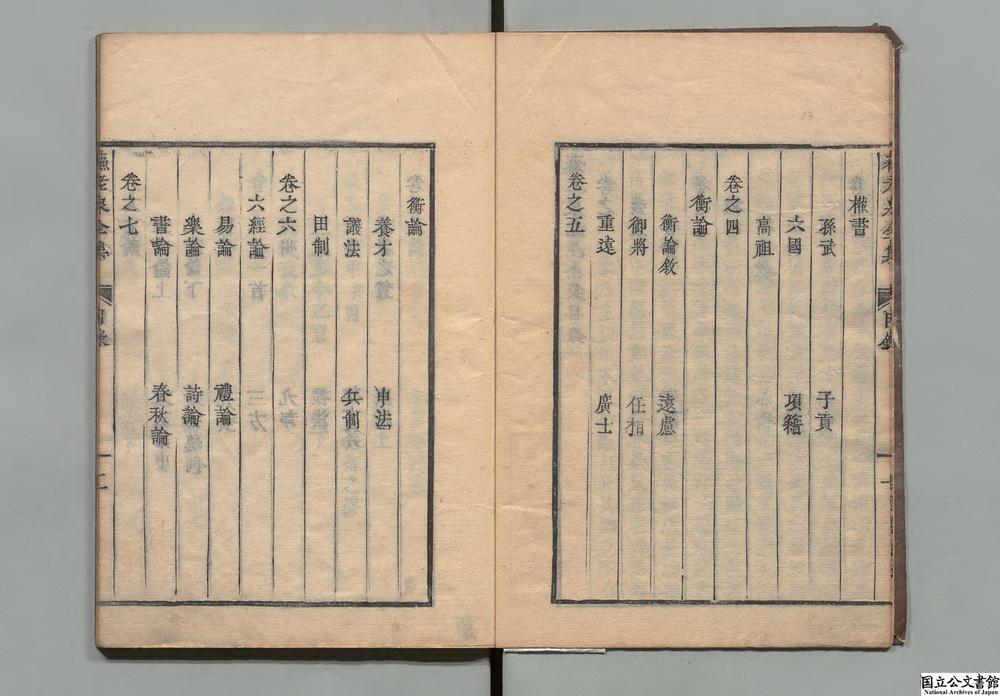 權書
孫武　子貢
六國　項籍
高祖
卷之四
衡論
衡論敘　遠慮
御將　任相
重遠　廣士
卷之五
衡論
養才　申法
議法　兵制
田制
卷之六
六經論
易論　禮論
樂論　詩論
書論　春秋論
卷之七
蘇老泉全集　目錄　二
国立公文書館
National Archives of Japan